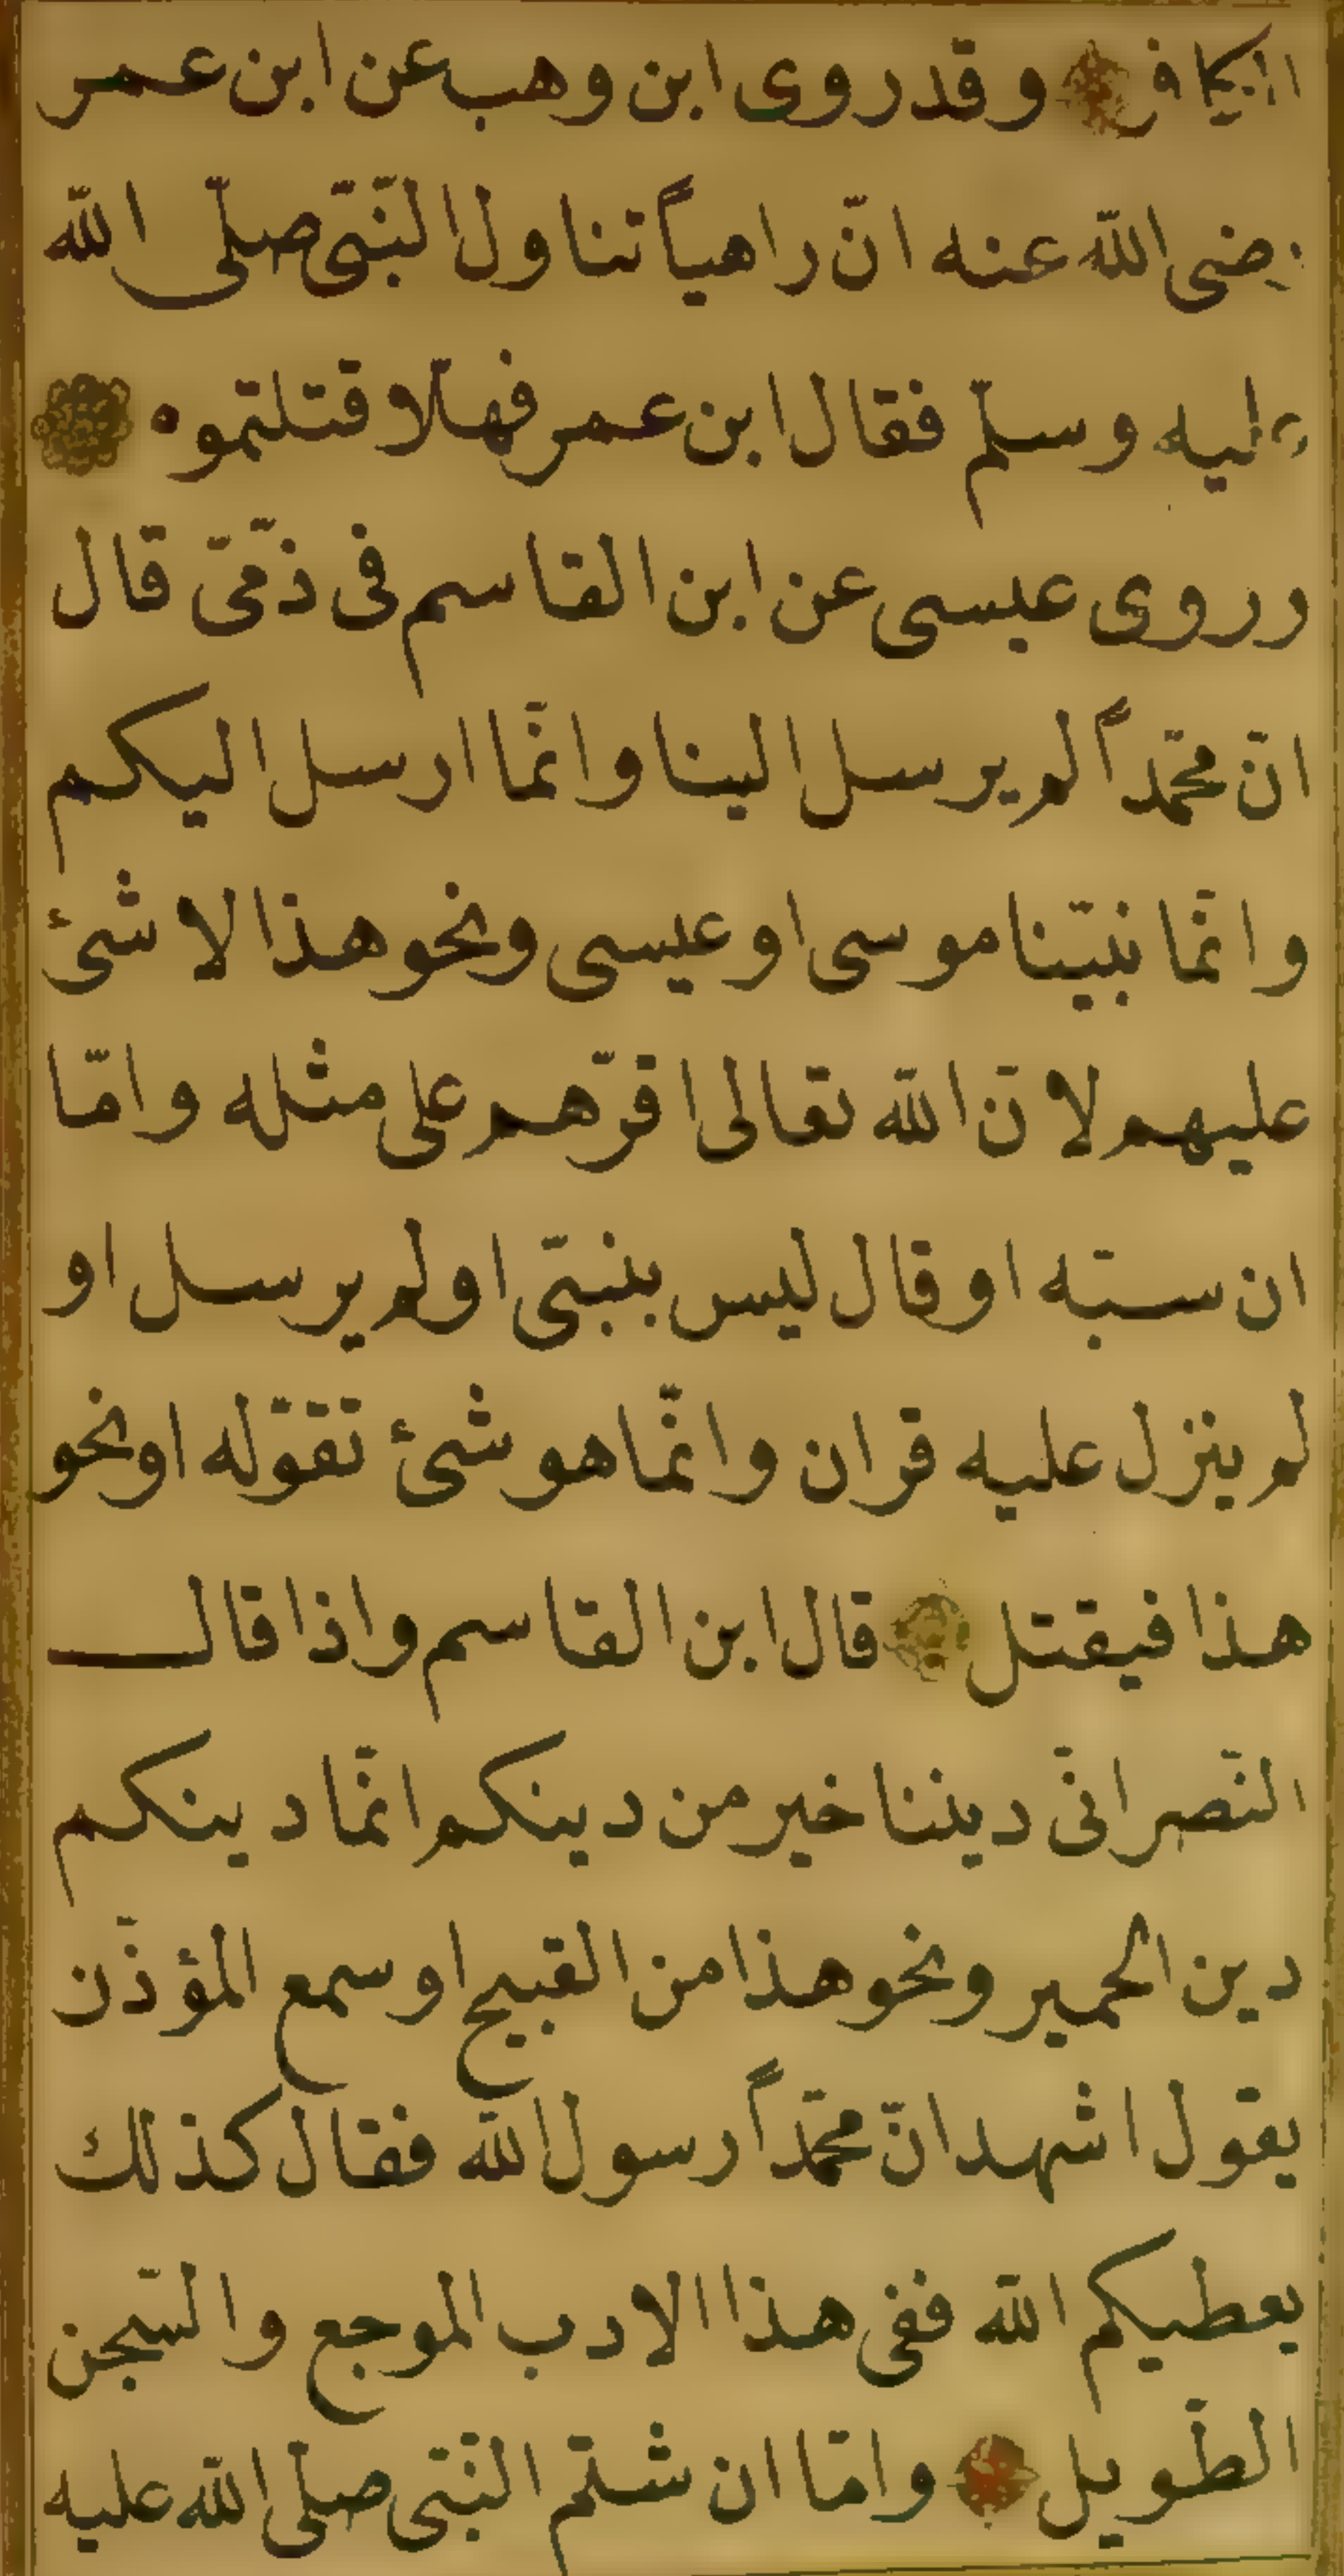 الكافر وقد روى ابن وهب عن ابن عمر
رضى الله عنه انّ راهباً تناول النّبىّ صلّى الله
عليه وسلّم فقال ابن عمر فهلّا قتلتموه
وروى عيسى عن ابن القاسم فى ذمّىّ قال
انّ محمّداً لم يرسل الينا وانّما ارسل اليكم
وانّما نبيّنا موسى او عيسى ونحو هذا لا شئ
عليهم لانّ الله تعالى اقرّهم على مثله وامّا
ان سبّه او قال ليس بنبىّ او لم يرسل او
لم ينزل عليه قران وانّما هو شئ تقوّله او نحو
هذا فيقتل قال ابن القاسم واذا قال
النّصرانىّ ديننا خير من دينكم انّما دينكم
دين الحمير ونحو هذا من القبيح او سمع المؤذّن
يقول اشهد انّ محمّداً رسول الله فقال كذلك
يعطيكم الله ففى هذا الادب الموجع والسّجن
الطّويل وامّا ان شتم النّبىّ صلّى الله عليه